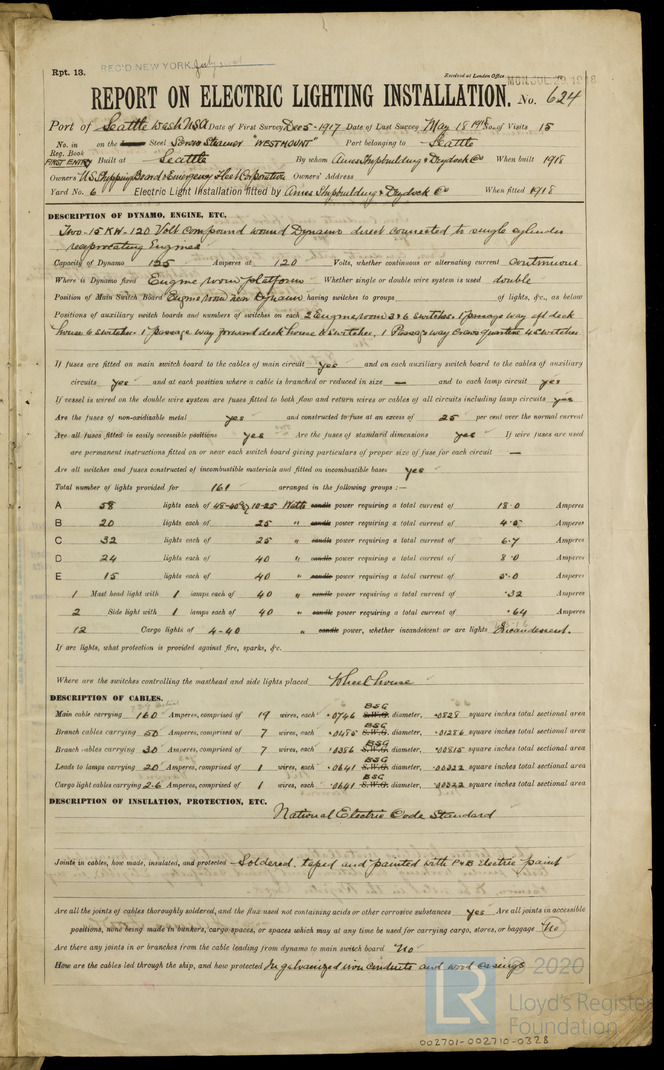 Rpt. 13.
REC'D NEW YORK July
Received at London Office
MON. JUL. 29. 1918
REPORT ON ELECTRIC LIGHTING INSTALLATION. No. 624
Port of Seattle Wash USA Date of First Survey Dec 5-1917 Date of Last Survey May 18 1918 No. of Visits 15
No. in Reg. Book on the Steel Screw Steamer "WESTMOUNT" Port belonging to Seattle
FIRST ENTRY Built at Seattle By whom Ames Shipbuilding & Drydock Co When built 1918
Owners' U.S. Shipping Board & Emergency Fleet Corporation Owners' Address
Yard No. 6 Electric Light Installation fitted by Ames Shipbuilding & Drydock Co When fitted 1918
DESCRIPTION OF DYNAMO, ENGINE, ETC.
Two-15 KW-120 Volt compound wound Dynamo direct connected to single cylinder
reciprocating Engines
Capacity of Dynamo 125 Amperes at 120 Volts, whether continuous or alternating current Continuous
Where is Dynamo fixed Engine room platform Whether single or double wire system is used double
Position of Main Switch Board Engine room near Dynamo having switches to groups of lights, &c., as below
Positions of auxiliary switch boards and numbers of switches on each 2 Engine room 3 & 6 switches. 1 passage way aft deck
house 6 switches. 1 passage way forward deck house 8 switches, 1 Passage way Crews quarters 4 switches
If fuses are fitted on main switch board to the cables of main circuit yes and on each auxiliary switch board to the cables of auxiliary
circuits yes and at each position where a cable is branched or reduced in size — and to each lamp circuit yes
If vessel is wired on the double wire system are fuses fitted to both flow and return wires or cables of all circuits including lamp circuits yes
Are the fuses of non-oxidizable metal yes and constructed to fuse at an excess of 25 per cent over the normal current
Are all fuses fitted in easily accessible positions yes Are the fuses of standard dimensions yes If wire fuses are used
are permanent instructions fitted on or near each switch board giving particulars of proper size of fuse for each circuit —
Are all switches and fuses constructed of incombustible materials and fitted on incombustible bases yes
Total number of lights provided for 161 arranged in the following groups :—
A 58 lights each of 48-40 & 10-25 Watts candle power requiring a total current of 18.0 Amperes
B 20 lights each of 25 " candle power requiring a total current of 4.5 Amperes
C 32 lights each of 25 " candle power requiring a total current of 6.7 Amperes
D 24 lights each of 40 " candle power requiring a total current of 8.0 Amperes
E 15 lights each of 40 " candle power requiring a total current of 5.0 Amperes
1 Mast head light with 1 lamps each of 40 " candle power requiring a total current of .32 Amperes
2 Side light with 1 lamps each of 40 " candle power requiring a total current of .64 Amperes
12 Cargo lights of 4-40 " candle power, whether incandescent or arc lights Incandescent.
If arc lights, what protection is provided against fire, sparks, &c.
Where are the switches controlling the masthead and side lights placed Wheel house
DESCRIPTION OF CABLES.
Main cable carrying 160 Amperes, comprised of 19 wires, each .0746 B&G S.W.G. diameter, .0828 square inches total sectional area
Branch cables carrying 50 Amperes, comprised of 7 wires, each .0485 B&G S.W.G. diameter, .01286 square inches total sectional area
Branch cables carrying 30 Amperes, comprised of 7 wires, each .0386 B&G S.W.G. diameter, .00815 square inches total sectional area
Leads to lamps carrying 20 Amperes, comprised of 1 wires, each .0641 B&G S.W.G. diameter, .00322 square inches total sectional area
Cargo light cables carrying 2.6 Amperes, comprised of 1 wires, each .0641 B&G S.W.G. diameter, .00322 square inches total sectional area
DESCRIPTION OF INSULATION, PROTECTION, ETC.
National Electric Code Standard
Joints in cables, how made, insulated, and protected Soldered, taped and painted with P&B Electric paint
Are all the joints of cables thoroughly soldered, and the flux used not containing acids or other corrosive substances yes Are all joints in accessible
positions, none being made in bunkers, cargo spaces, or spaces which may at any time be used for carrying cargo, stores, or baggage No
Are there any joints in or branches from the cable leading from dynamo to main switch board No
How are the cables led through the ship, and how protected In galvanized iron conduits and wood casings
LR
© 2020
Lloyd's Register
Foundation
002701-002710-0328